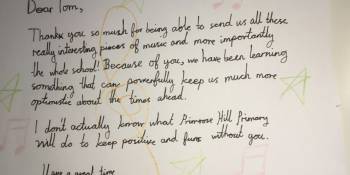 Dear Tom,
Thank you so much for being able to send us all these
really interesting pieces of music and more importantly
the whole school! Because of you, we have been learning
something that can powerfully keep us much more
optimistic about the times ahead.
I don't actually know what Primrose Hill Primary
will do to keep positive and fun without you.
Have a great time